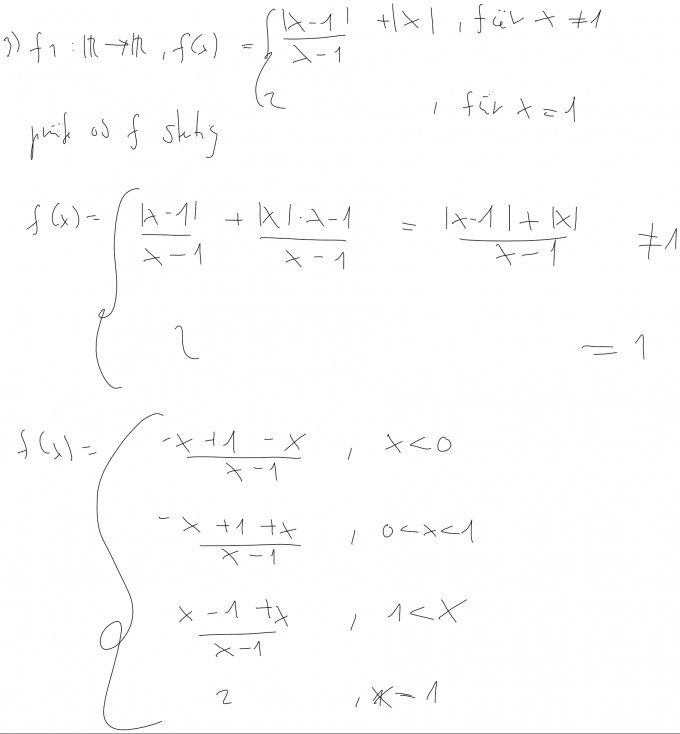 3) f1 : ℝ → ℝ , f(x) = { |x-1| / x-1 + |x| , für x ≠ 1
2 , für x = 1
prüfe ob f stetig
f(x) = { |x-1| / x-1 + |x| · x-1 / x-1 = |x-1| + |x| / x-1 ≠ 1
2 = 1
f(x) = { -x + 1 - x / x-1 , x < 0
-x + 1 + x / x-1 , 0 < x < 1
x - 1 + x / x-1 , 1 < x
2 , x = 1